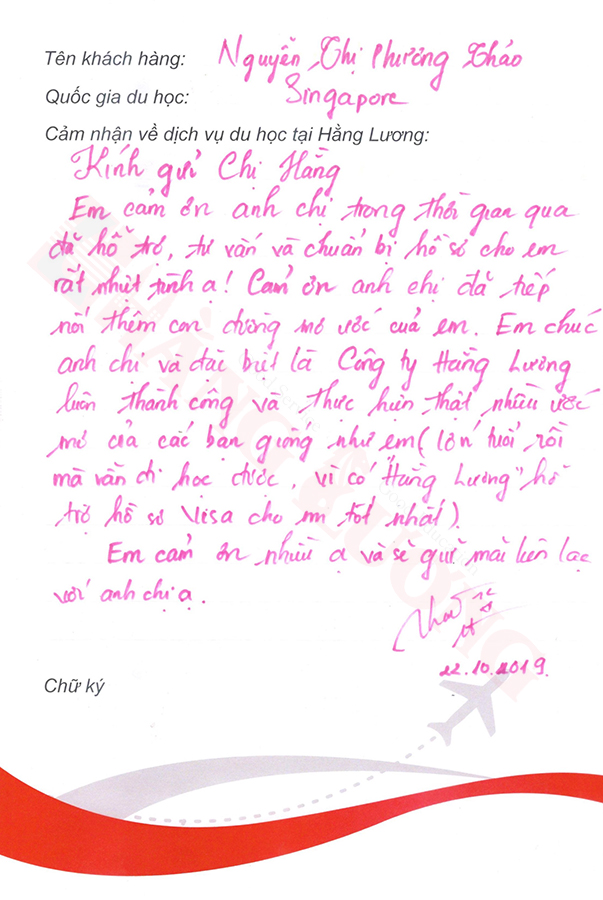 Tên khách hàng: Nguyễn Thị Phương Thảo
Quốc gia du học: Singapore
Cảm nhận về dịch vụ du học tại Hằng Lương:
Kính gửi Chị Hằng
Em cảm ơn anh chị trong thời gian qua
đã hỗ trợ, tư vấn và chuẩn bị hồ sơ cho em
rất nhiệt tình ạ! Cảm ơn anh chị đã tiếp
nối thêm con đường mơ ước của em. Em chúc
anh chị và đặc biệt là Công ty Hằng Lương
luôn thành công và thực hiện thật nhiều ước
mơ của các bạn giống như em (lớn tuổi rồi
mà vẫn đi học được, vì có "Hằng Lương" hỗ
trợ hồ sơ Visa cho em tốt nhất).
Em cảm ơn nhiều ạ và sẽ giữ mãi liên lạc
với anh chị ạ.
22.10.2019.
Chữ ký
HẰNG LƯƠNG